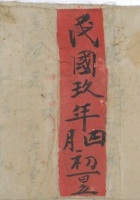 民國玖年四月初